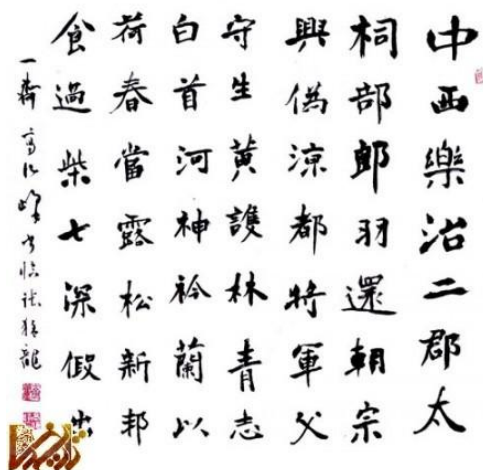 中西樂治二郡太
祠部郎羽還朝宗
興偽涼都將軍父
守生黄護林青志
白首河神衿蘭以
荷春當露松新邦
食過柴七深假出
一齋高
臨張猛龍